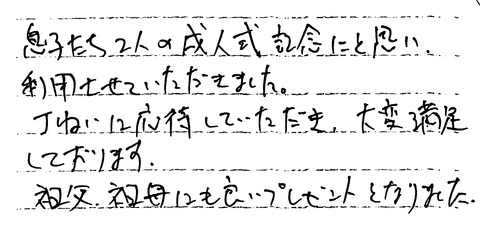 息子たち2人の成人式記念にと思い、
利用させていただきました。
丁ねいに応待していただき、大変満足
しております。
祖父、祖母にも良いプレゼントとなりました。